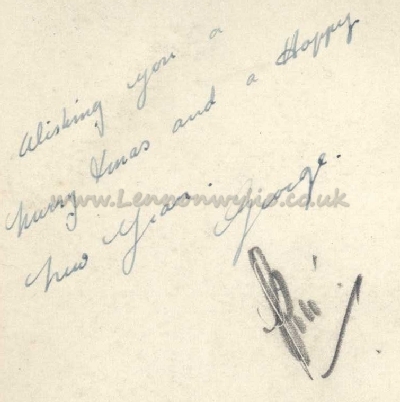 Wishing you a
merry Xmas and a Happy
New Year. George.
www.Lennonwylie.co.uk